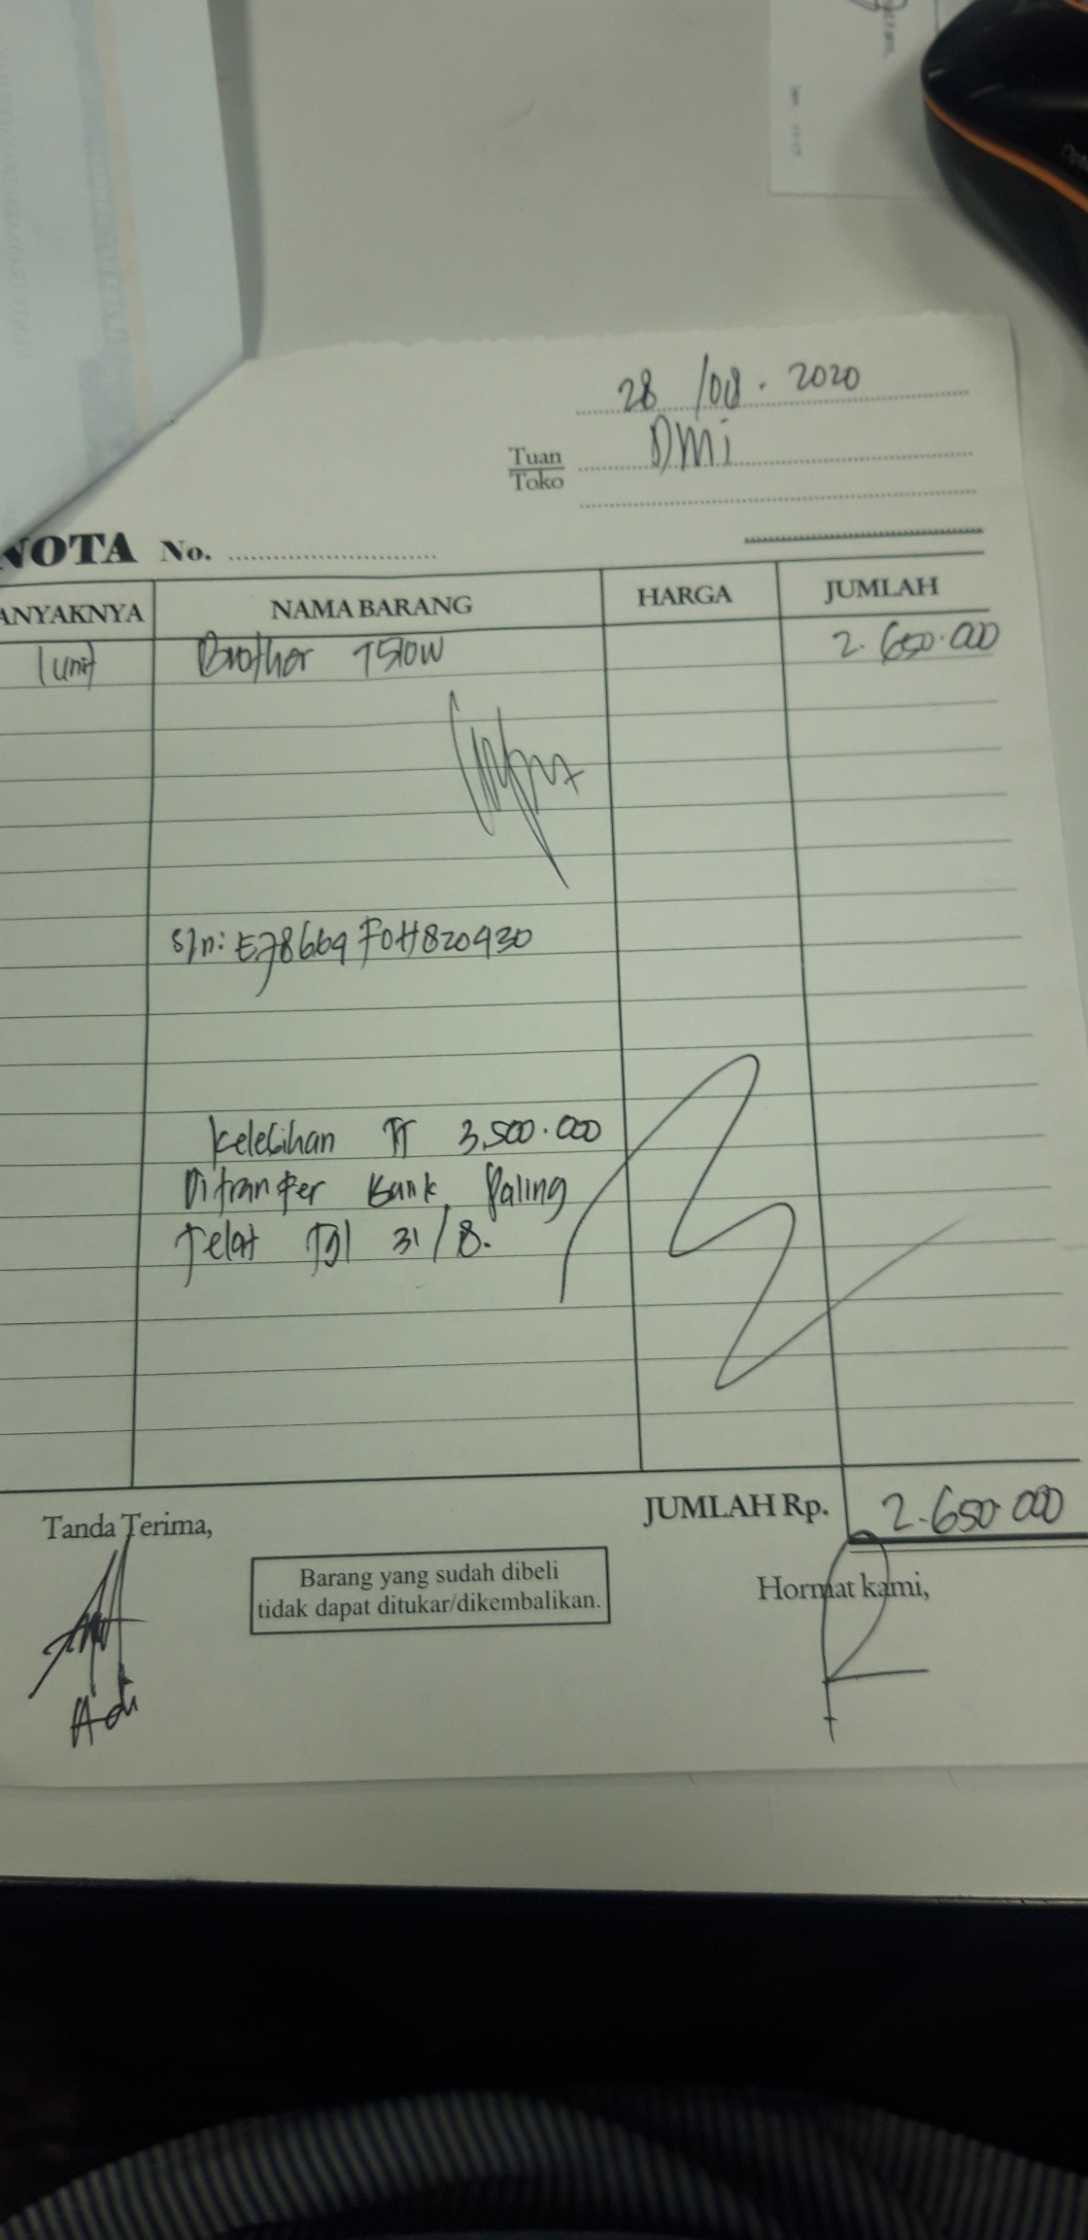 28 /08. 2020
Tuan
Toko
DMI
NOTA No.
ANYAKNYA NAMA BARANG HARGA JUMLAH
1 unit Brother T510W 2.650.000
S/n: E78669F0H820930
kelebihan TT 3.500.000
Ditransfer Bank Paling
Telat Tgl 31/8.
JUMLAH Rp. 2.650.000
Tanda Terima,
Barang yang sudah dibeli
tidak dapat ditukar/dikembalikan.
Hormat kami,
Adi